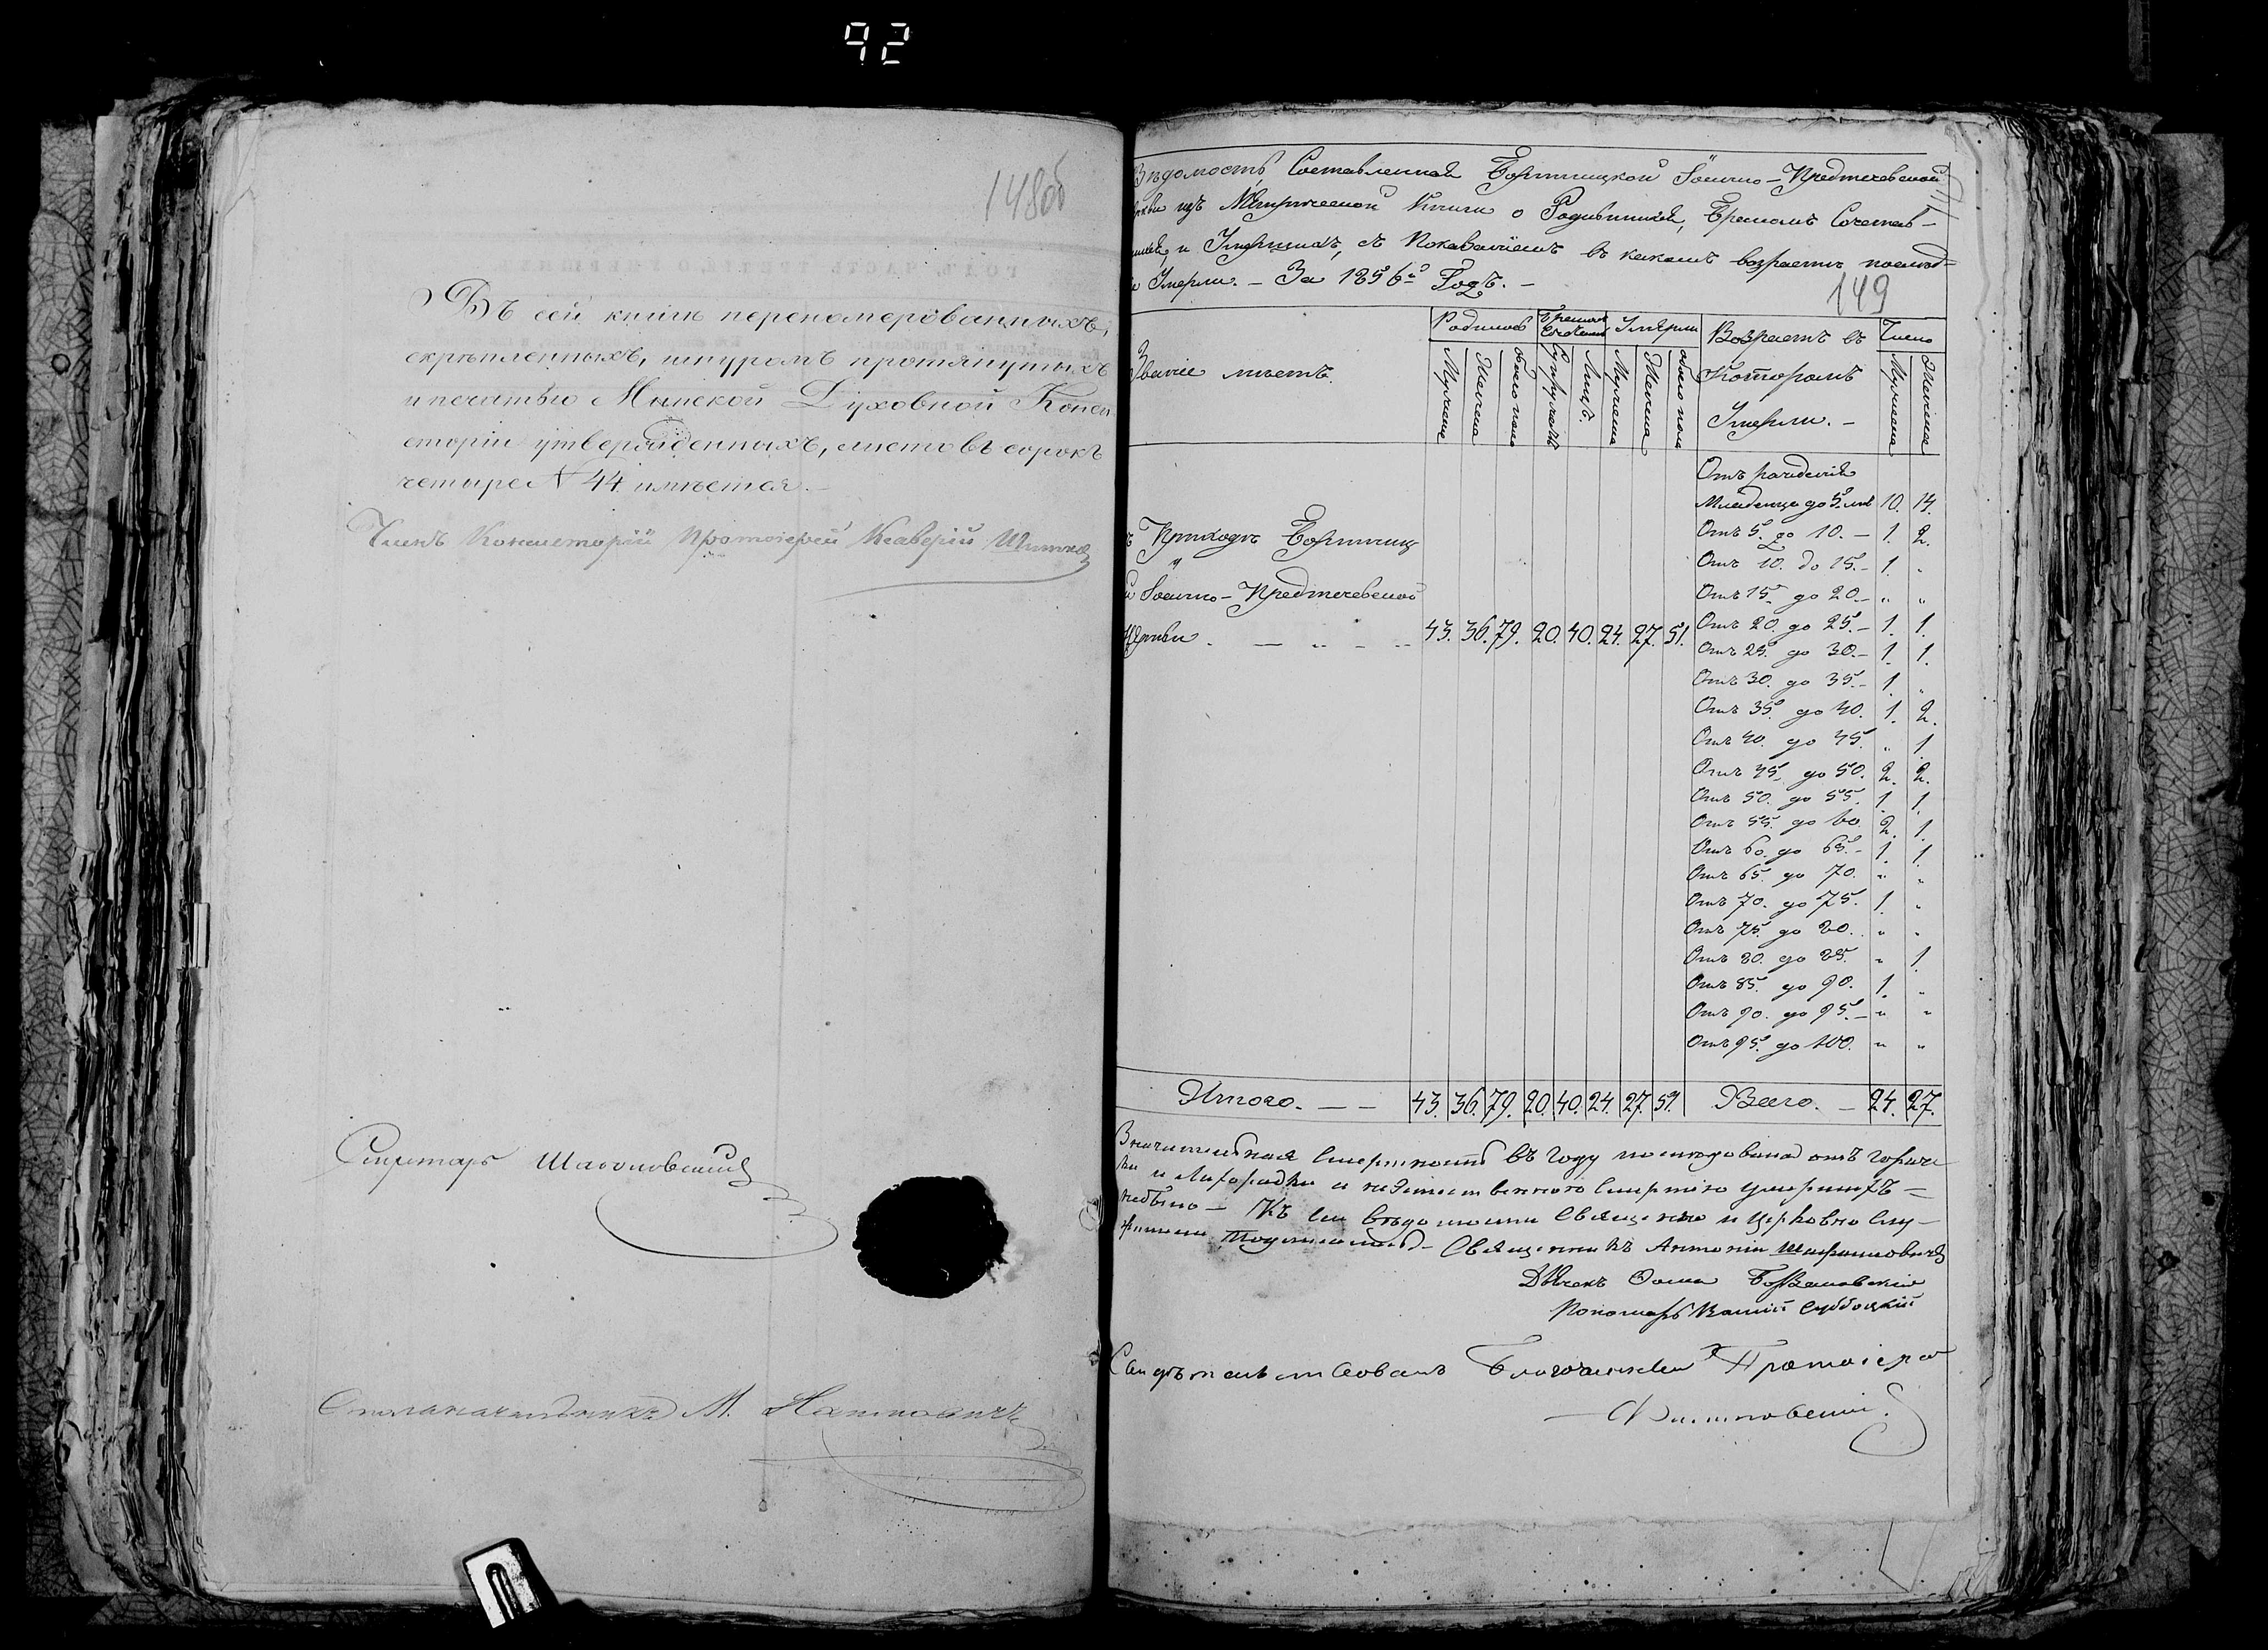 92
148об
Въ сей книгѣ перенумерованныхъ,
скрѣпленныхъ, шнуромъ протянутыхъ
и печатью Минской Духовной Конси
сторіи утвержденныхъ, листовъ сорокъ
четыре № 44 имѣется.
Членъ Консисторіи Протоіерей Ксаверій
Секретарь
Столоначальникъ М.
Вѣдомость, Составленная Бортницкой Іоанно-Предтечевской
изъ Метрической Книги о Родившихся, Бракомъ Сочетав-
и Умершихъ, съ Показаніемъ въ какомъ возрастѣ послѣд-
Умерли. – За 1856й Годъ. –
149
Званіе мѣстъ.
Родилось
Бракомъ Сочетано
Умерли
Возрастъ въ Которомъ Умерли. –
Число
Мужеска
Женска
обоего пола
Супружествъ
Лицъ.
Мужеска
Женска
обоего пола
Мужеска
Женска
Отъ рожденія
Младенца до 5. лѣт 10. 14.
Отъ 5. до 10. – 1. 2.
Отъ 10. до 15. – 1. "
Отъ 15 до 20. – " "
Отъ 20. до 25. – 1. 1.
Отъ 25. до 30. – 1. 1.
Отъ 30. до 35. – 1. "
Отъ 35. до 40. 1. 2.
Отъ 40. до 45. " 1
Отъ 45. до 50. 2. 2.
Отъ 50. до 55. 1. 1
Отъ 55. до 60. 2. 1.
Отъ 60. до 65. – 1. 1.
Отъ 65. до 70. " "
Отъ 70. до 75. 1. "
Отъ 75. до 80. " "
Отъ 80. до 85. " 1.
Отъ 85. до 90. 1. "
Отъ 90. до 95. – " "
Отъ 95. до 100. " "
Приходъ Бортниц
Іоанно-Предтечевской
Церкви . — " – " 43. 36. 79. 20. 40. 24. 27. 51.
Итого. — — 43. 36. 79. 20. 40. 24. 27. 51. Всего. – 24. 27.
Значительная Смертность въ году послѣдовала отъ горяч
ки и Лихорадки и неестественною Смертію умершихъ –
небыло – Къ сей вѣдомости Священно и Церковно Слу-
жители Подписались – Священникъ Антоній
Дьячекъ Ѳома
Пономарь Субботкій
Свидѣтельствовалъ Благочинный Протоіерей